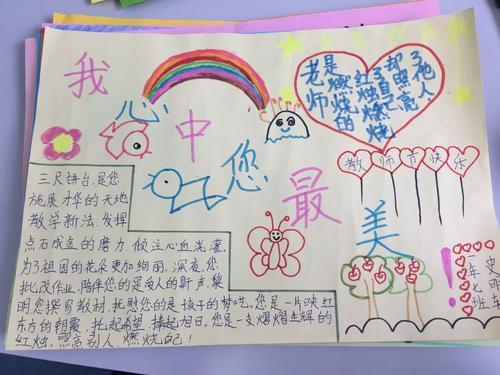 我心中您最美
老师是燃烧的红烛燃烧了自己却照亮了他人
教师节快乐
三尺讲台,是您
施展才华的天地
教学新法,发挥
点石成金的魔力,倾注心血浇灌,
为了祖国的花朵更加绚丽,深夜,您
批改作业,陪伴您的是的人的鼾声,黎
明,您撰写教材,抚慰您的是孩子的梦呓。您是一片映红
东方的朝霞,托起希望,捧起旭日,您是一支熠熠生辉的
红烛。照亮别人,燃烧自己!
一年七班
史